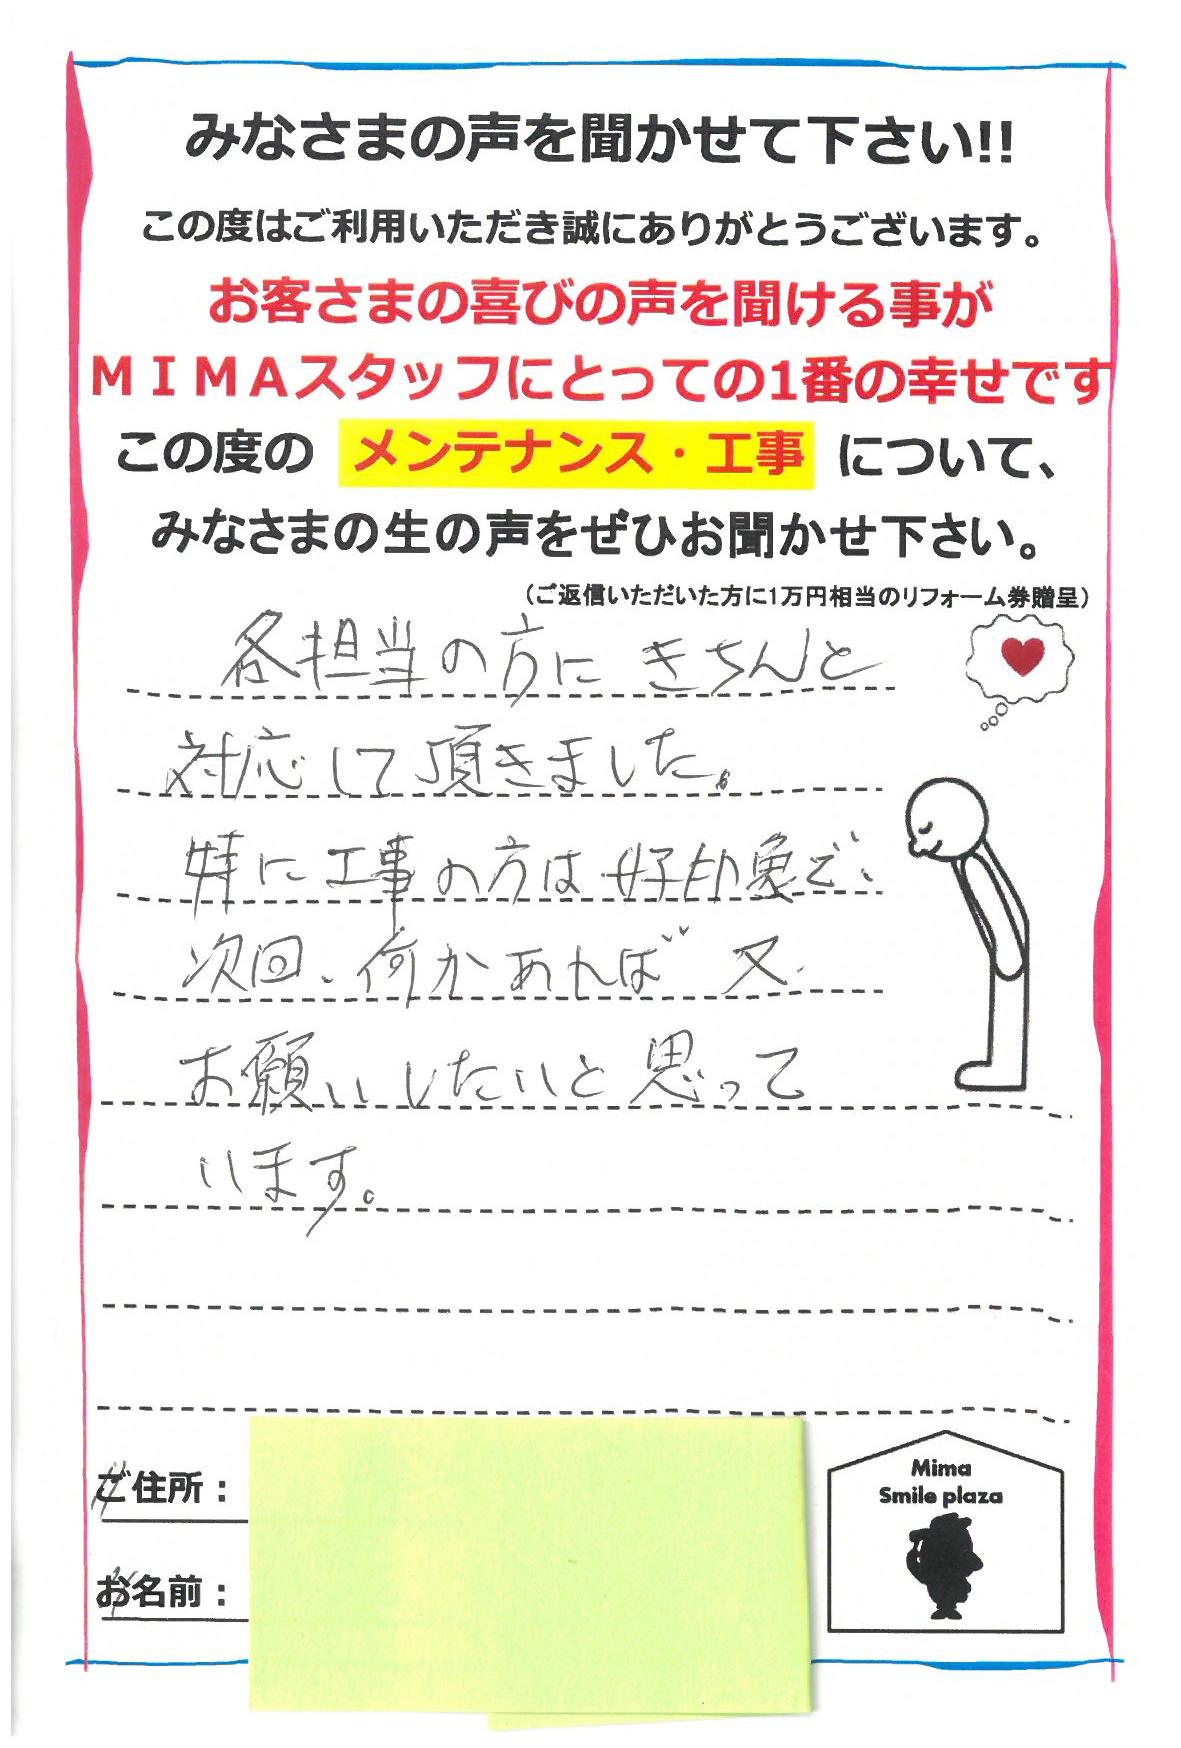 みなさまの声を聞かせて下さい!!
この度はご利用いただき誠にありがとうございます。
お客さまの喜びの声を聞ける事が
ＭＩＭＡスタッフにとっての1番の幸せです
この度の メンテナンス・工事 について、
みなさまの生の声をぜひお聞かせ下さい。
（ご返信いただいた方に1万円相当のリフォーム券贈呈）
各担当の方に きちんと
対応して頂きました。
特に工事の方は好印象で、
次回、何かあれば 又、
お願いしたいと思って
います。
ご住所：
お名前：
Mima
Smile plaza